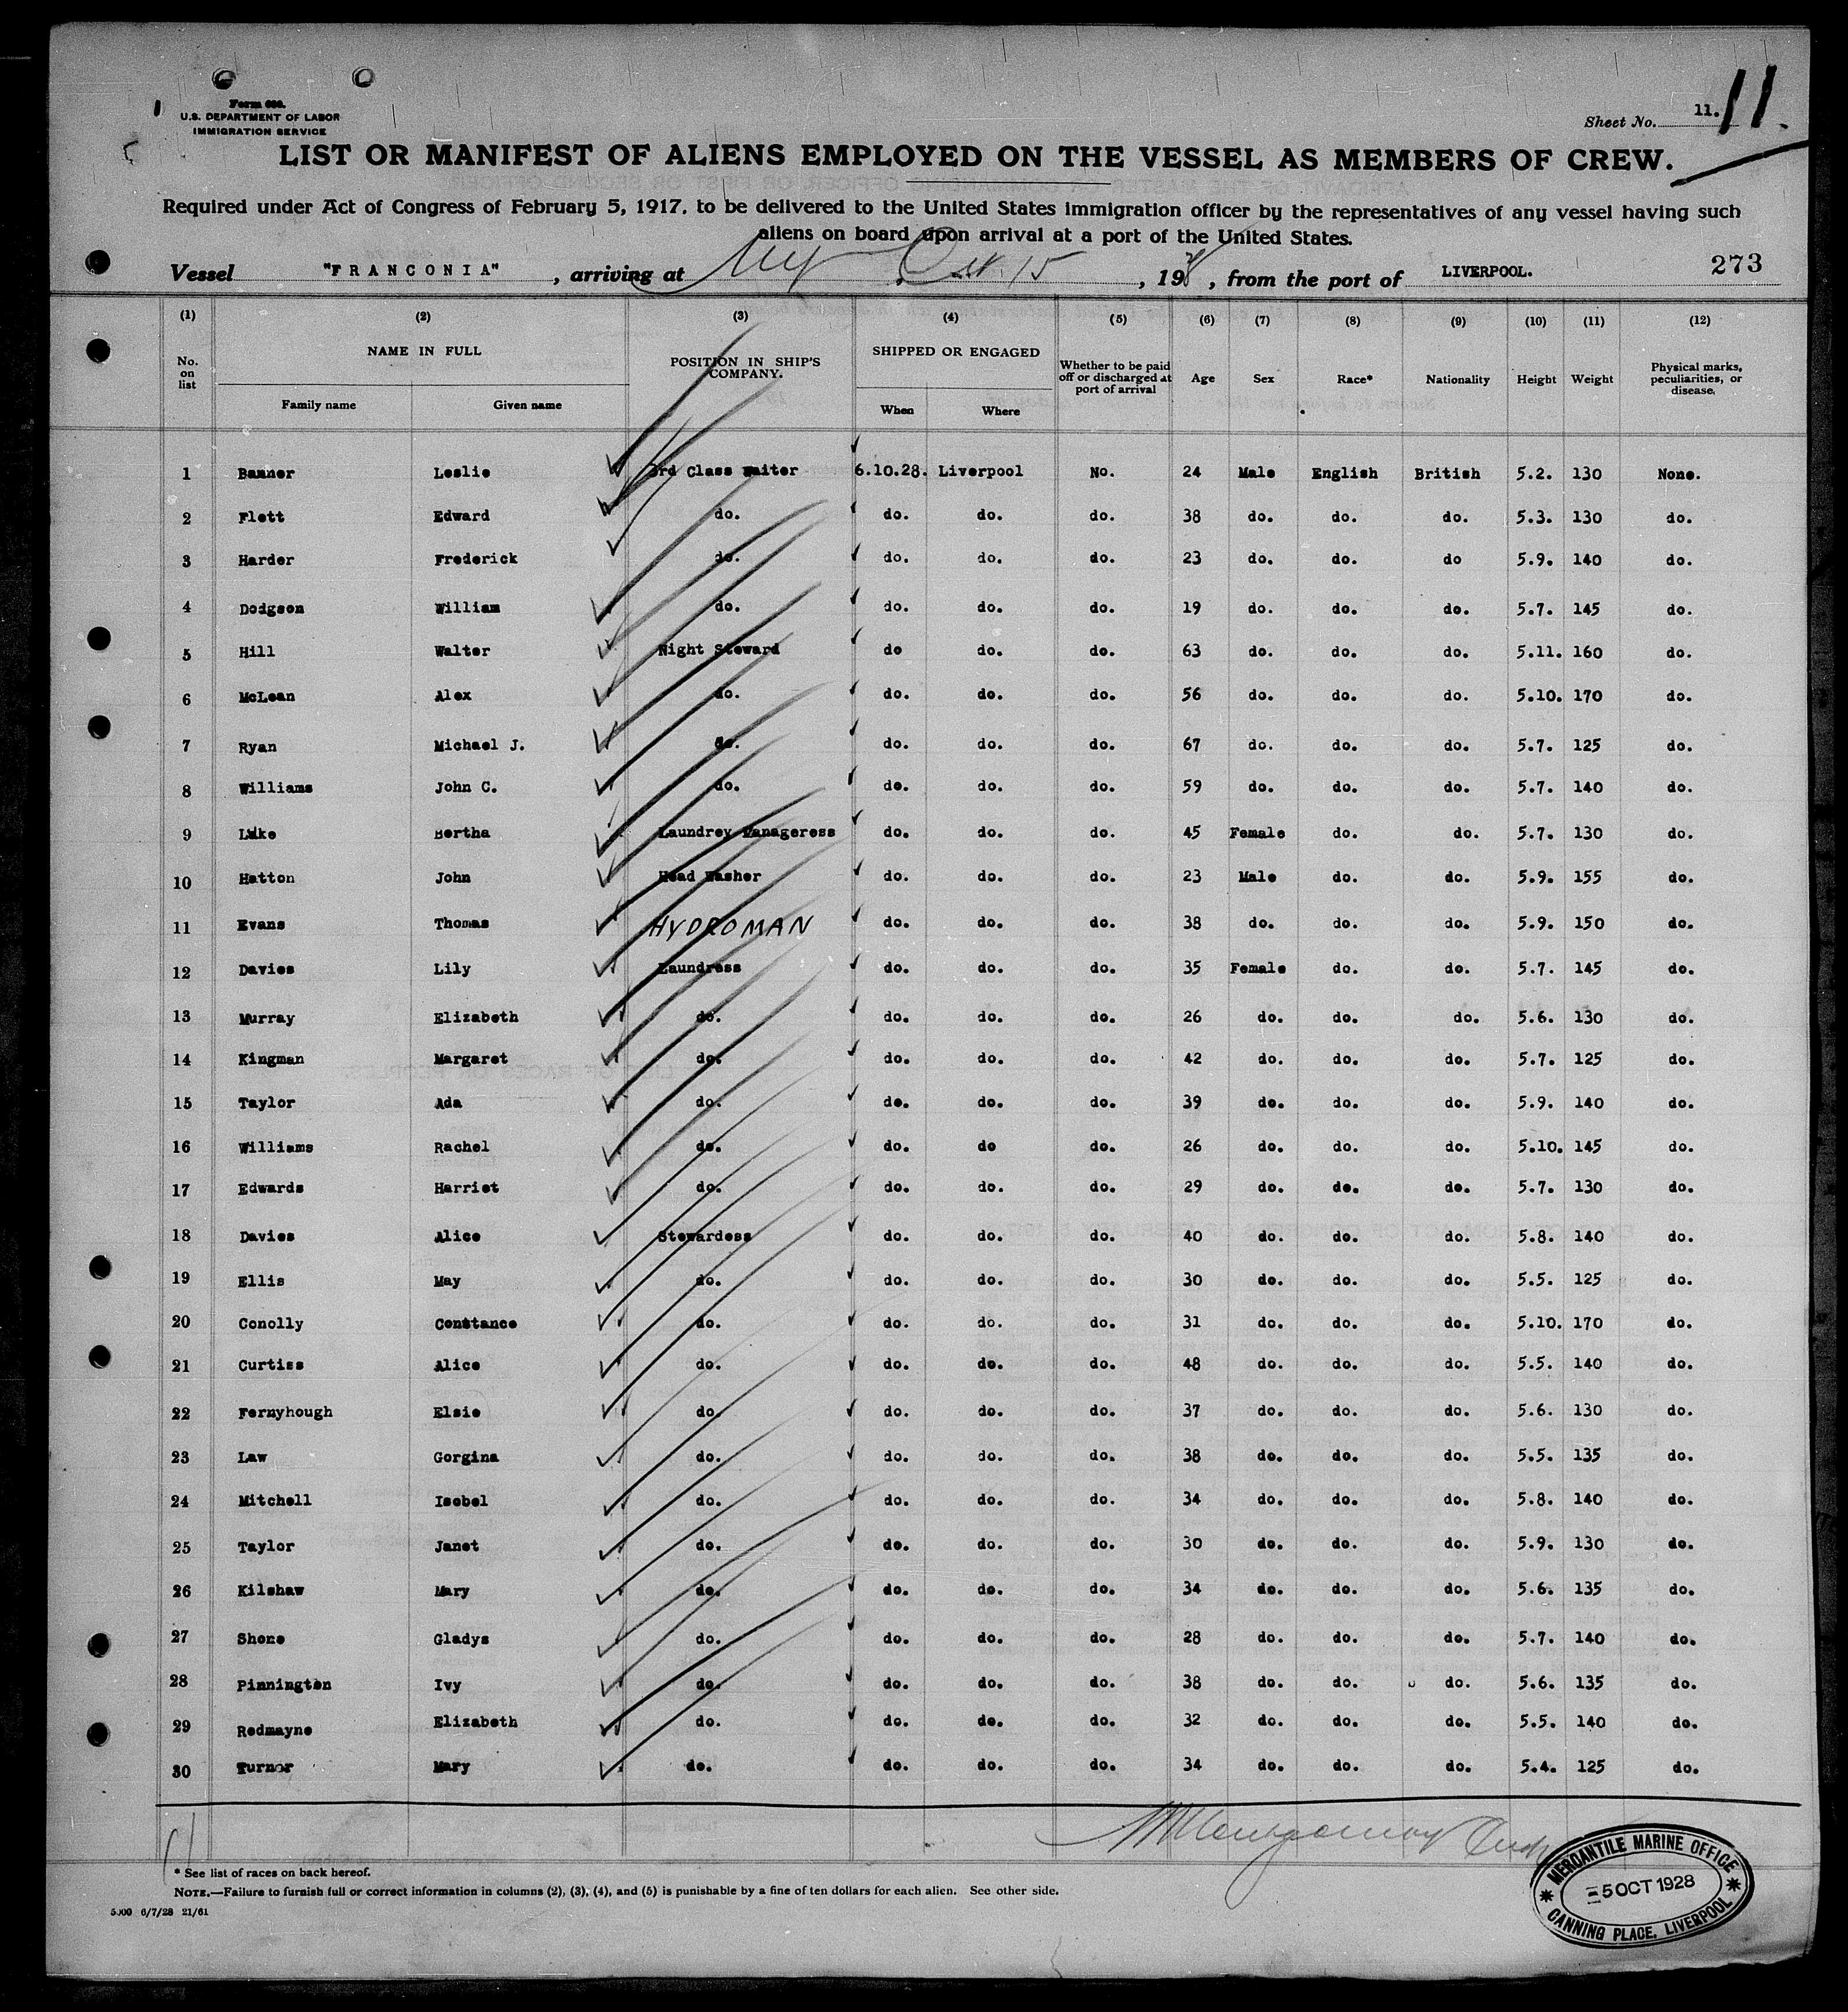 Form 680.
U.S. DEPARTMENT OF LABOR
IMMIGRATION SERVICE
Sheet No. 11. 11
LIST OR MANIFEST OF ALIENS EMPLOYED ON THE VESSEL AS MEMBERS OF CREW.
Required under Act of Congress of February 5, 1917, to be delivered to the United States immigration officer by the representatives of any vessel having such
aliens on board upon arrival at a port of the United States.
Vessel "FRANCONIA", arriving at NY Oct. 15, 1928, from the port of LIVERPOOL. 273
(1) (2) (3) (4) (5) (6) (7) (8) (9) (10) (11) (12)
No. on list NAME IN FULL POSITION IN SHIP'S COMPANY. SHIPPED OR ENGAGED Whether to be paid off or discharged at port of arrival Age Sex Race* Nationality Height Weight Physical marks, peculiarities, or disease.
Family name Given name When Where
1 Banner Leslie 3rd Class Waiter 6.10.28. Liverpool No. 24 Male English British 5.2. 130 None.
2 Flett Edward do. do. do. do. 38 do. do. do. 5.3. 130 do.
3 Harder Frederick do. do. do. do. 23 do. do. do 5.9. 140 do.
4 Dodgson William do. do. do. do. 19 do. do. do. 5.7. 145 do.
5 Hill Walter Night Steward do do. do. 63 do. do. do. 5.11. 160 do.
6 McLean Alex do. do. do. do. 56 do. do. do. 5.10. 170 do.
7 Ryan Michael J. do. do. do. do. 67 do. do. do. 5.7. 125 do.
8 Williams John C. do. do. do. do. 59 do. do. do. 5.7. 140 do.
9 Luke Bertha Laundrey Manageress do. do. do. 45 Female do. do. 5.7. 130 do.
10 Hatton John Head Washer do. do. do. 23 Male do. do. 5.9. 155 do.
11 Evans Thomas HYDROMAN do. do. do. 38 do. do. do. 5.9. 150 do.
12 Davies Lily Laundress do. do. do. 35 Female do. do. 5.7. 145 do.
13 Murray Elizabeth do. do. do. do. 26 do. do. do. 5.6. 130 do.
14 Kingman Margaret do. do. do. do. 42 do. do. do. 5.7. 125 do.
15 Taylor Ada do. do. do. do. 39 do. do. do. 5.9. 140 do.
16 Williams Rachel do. do. do do. 26 do. do. do. 5.10. 145 do.
17 Edwards Harriet do. do. do. do. 29 do. do. do. 5.7. 130 do.
18 Davies Alice Stewardess do. do. do. 40 do. do. do. 5.8. 140 do.
19 Ellis May do. do. do. do. 30 do. do. do. 5.5. 125 do.
20 Conolly Constance do. do. do. do. 31 do. do. do. 5.10. 170 do.
21 Curtiss Alice do. do. do. do. 48 do. do. do. 5.5. 140 do.
22 Fernyhough Elsie do. do. do. do. 37 do. do. do. 5.6. 130 do.
23 Law Gorgina do. do. do. do. 38 do. do. do. 5.5. 135 do.
24 Mitchell Isobel do. do. do. do. 34 do. do. do. 5.8. 140 do.
25 Taylor Janet do. do. do. do. 30 do. do. do. 5.9. 130 do.
26 Kilshaw Mary do. do. do. do. 34 do. do. do. 5.6. 135 do.
27 Shone Gladys do. do. do. do. 28 do. do. do. 5.7. 140 do.
28 Pinnington Ivy do. do. do. do. 38 do. do. do. 5.6. 135 do.
29 Redmayne Elizabeth do. do. do. do. 32 do. do. do. 5.5. 140 do.
30 Turnor Mary do. do. do. do. 34 do. do. do. 5.4. 125 do.
11
* See list of races on back hereof.
NOTE.—Failure to furnish full or correct information in columns (2), (3), (4), and (5) is punishable by a fine of ten dollars for each alien. See other side.
5000 6/7/28 21/61
MERCANTILE MARINE OFFICE
5 OCT 1928
CANNING PLACE, LIVERPOOL